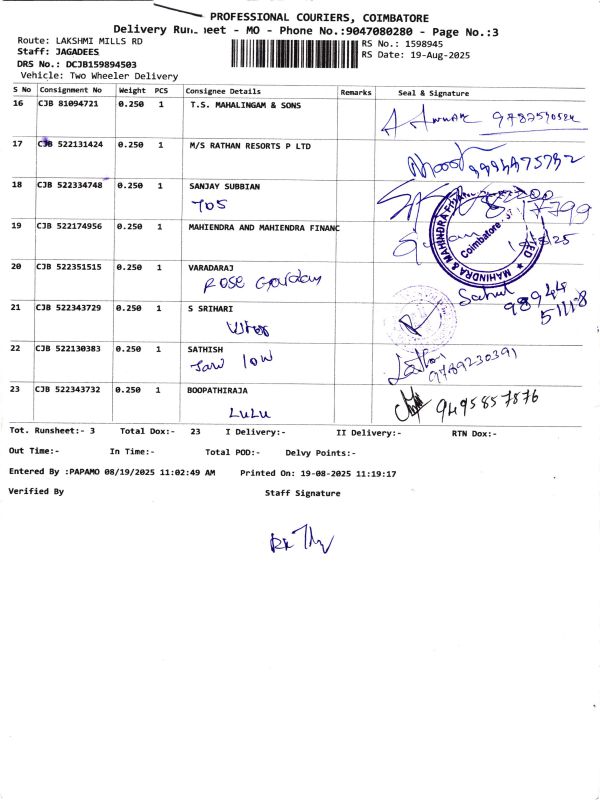 PROFESSIONAL COURIERS, COIMBATORE
Delivery Run heet - MO - Phone No.:9047080280 - Page No.:3
Route: LAKSHMI MILLS RD
RS No.: 1598945
Staff: JAGADEES
RS Date: 19-Aug-2025
DRS No.: DCJB159894503
Vehicle: Two Wheeler Delivery
S No Consignment No Weight PCS Consignee Details Remarks Seal & Signature
16 CJB 81094721 0.250 1 T.S. MAHALINGAM & SONS
17 CJB 522131424 0.250 1 M/S RATHAN RESORTS P LTD
18 CJB 522334748 0.250 1 SANJAY SUBBIAN
705
19 CJB 522174956 0.250 1 MAHIENDRA AND MAHIENDRA FINANC
MAHINDRA & MAHINDRA
Coimbatore
20 CJB 522351515 0.250 1 VARADARAJ
Rose Garden
98944
51118
21 CJB 522343729 0.250 1 S SRIHARI
22 CJB 522130383 0.250 1 SATHISH
9789230391
23 CJB 522343732 0.250 1 BOOPATHIRAJA
LULU
9495857876
Tot. Runsheet:- 3 Total Dox:- 23 I Delivery:- II Delivery:- RTN Dox:-
Out Time:- In Time:- Total POD:- Delvy Points:-
Entered By :PAPAMO 08/19/2025 11:02:49 AM Printed On: 19-08-2025 11:19:17
Verified By Staff Signature